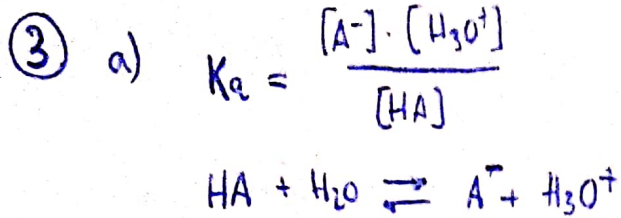 ③ a) Ka = [A⁻]·[H₃O⁺] / [HA]
HA + H₂O ⇌ A⁻ + H₃O⁺